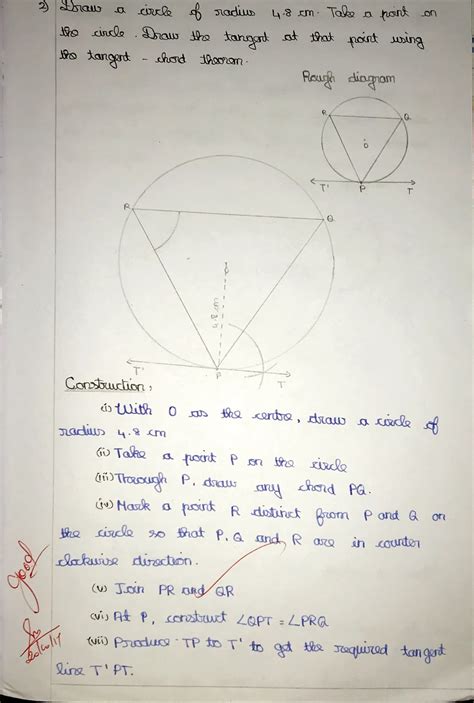 2) Draw a circle of radius 4.8 cm. Take a point on
the circle. Draw the tangent at that point using
the tangent - chord theorem.
Rough diagram
R
Q
O
T'
P
T
R
Q
O
4.8 cm
T'
P
T
Construction,
(i) With O as the centre, draw a circle of
radius 4.8 cm
(ii) Take a point P on the circle
(iii) Through P, draw any chord PQ.
(iv) Mark a point R distinct from P and Q on
the circle so that P, Q and R are in counter
clockwise direction.
(v) Join PR and QR
(vi) At P, construct ∠QPT = ∠PRQ
(vii) Produce TP to T' to get the required tangent
line T'PT.
Good